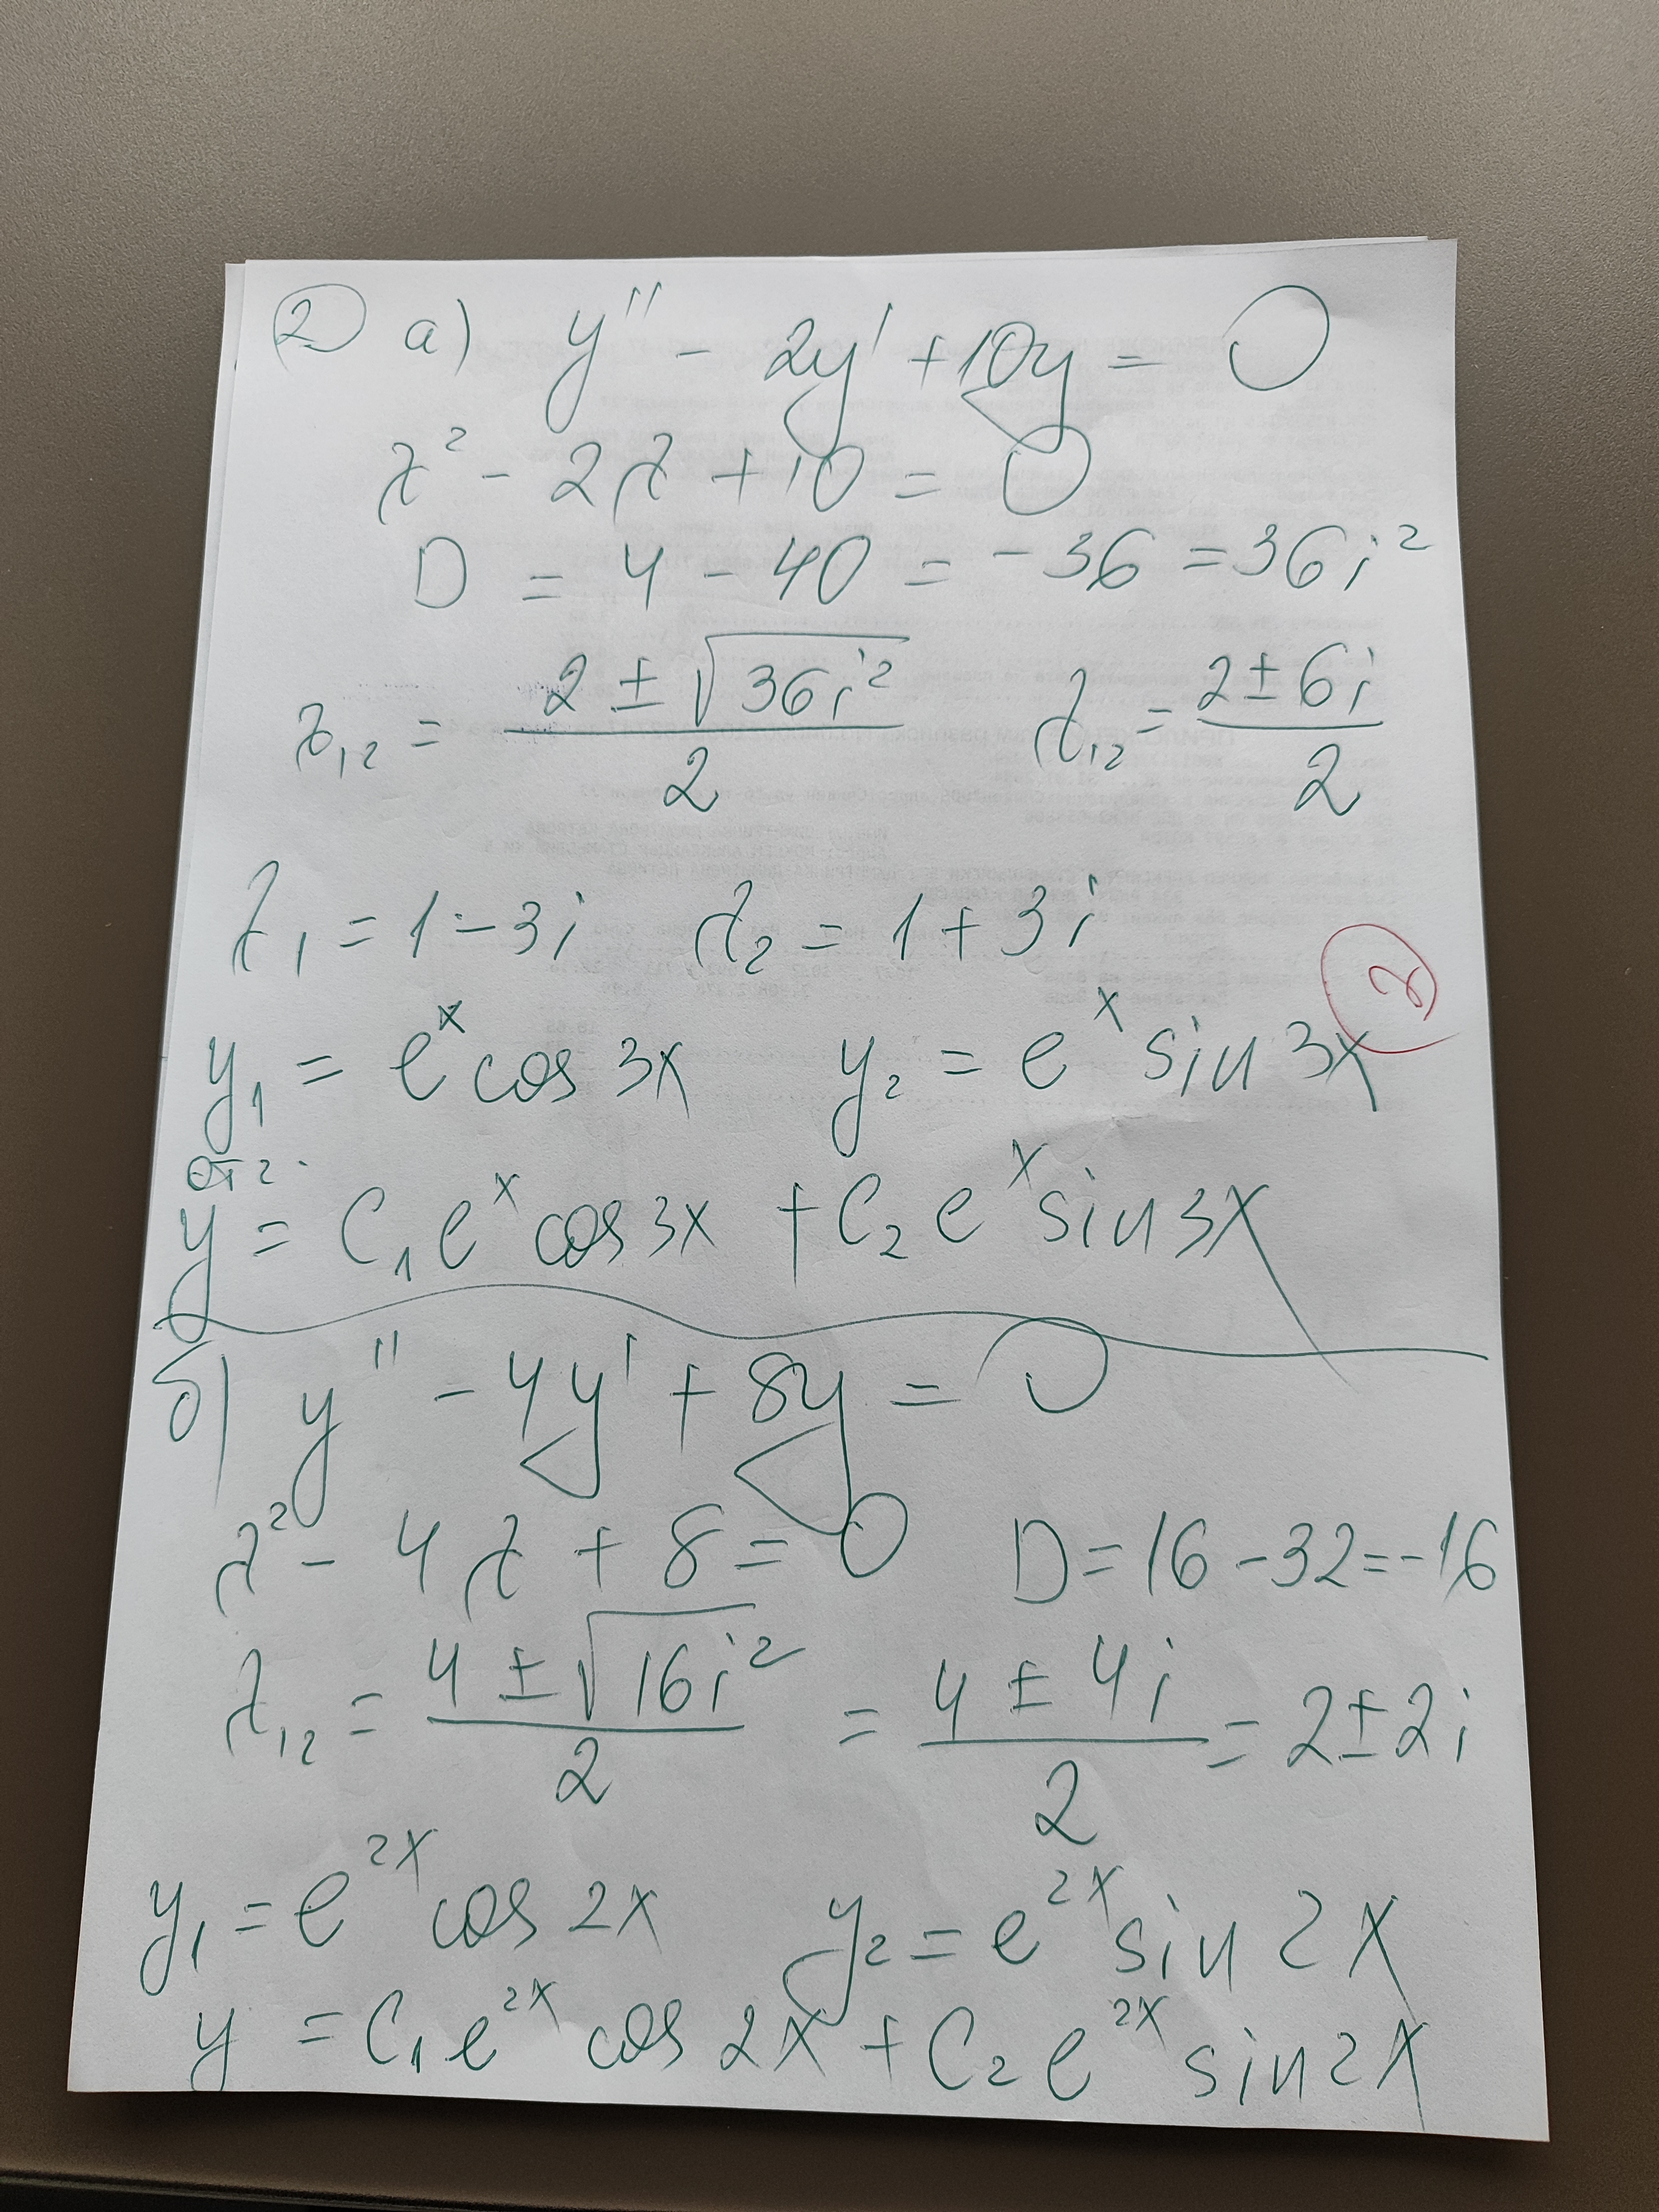 ② а) y'' - 2y' + 10y = 0
λ² - 2λ + 10 = 0
D = 4 - 40 = -36 = 36i²
λ₁,₂ = (2 ± √(36i²))/2   λ₁,₂ = (2 ± 6i)/2
λ₁ = 1 - 3i   λ₂ = 1 + 3i
②
y₁ = eˣ cos 3x   y₂ = eˣ sin 3x
От г.
y = C₁ eˣ cos 3x + C₂ eˣ sin 3x
б) y'' - 4y' + 8y = 0
λ² - 4λ + 8 = 0   D = 16 - 32 = -16
λ₁₂ = (4 ± √(16i²))/2 = (4 ± 4i)/2 = 2 ± 2i
y₁ = e²ˣ cos 2x   y₂ = e²ˣ sin 2x
y = C₁ e²ˣ cos 2x + C₂ e²ˣ sin 2x